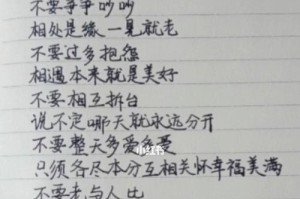 不要争争吵吵
相处是缘一晃就老
不要过多抱怨
相遇本来就是美好
不要相互拆台
说不定哪天就永远分开
不要整天多爱多受
只须各尽本分互相关怀幸福美满
不要老与人比